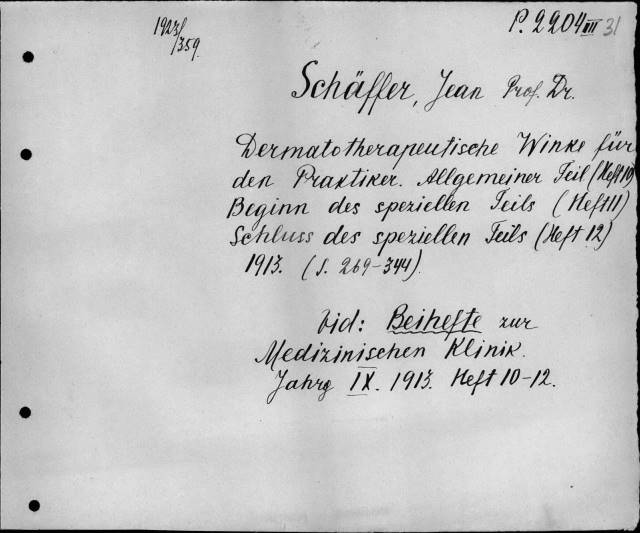 1923/
/359.
P. 2204 III 31
Schäffer, Jean Prof. Dr.
Dermatotherapeutische Winke für
den Praktiker. Allgemeiner Teil (Heft 10)
Beginn des speziellen Teils (Heft 11)
Schluss des speziellen Teils (Heft 12)
1913. (S. 269-344).
vid: Beihefte zur
Medizinischen Klinik.
Jahrg IX. 1913. Heft 10-12.